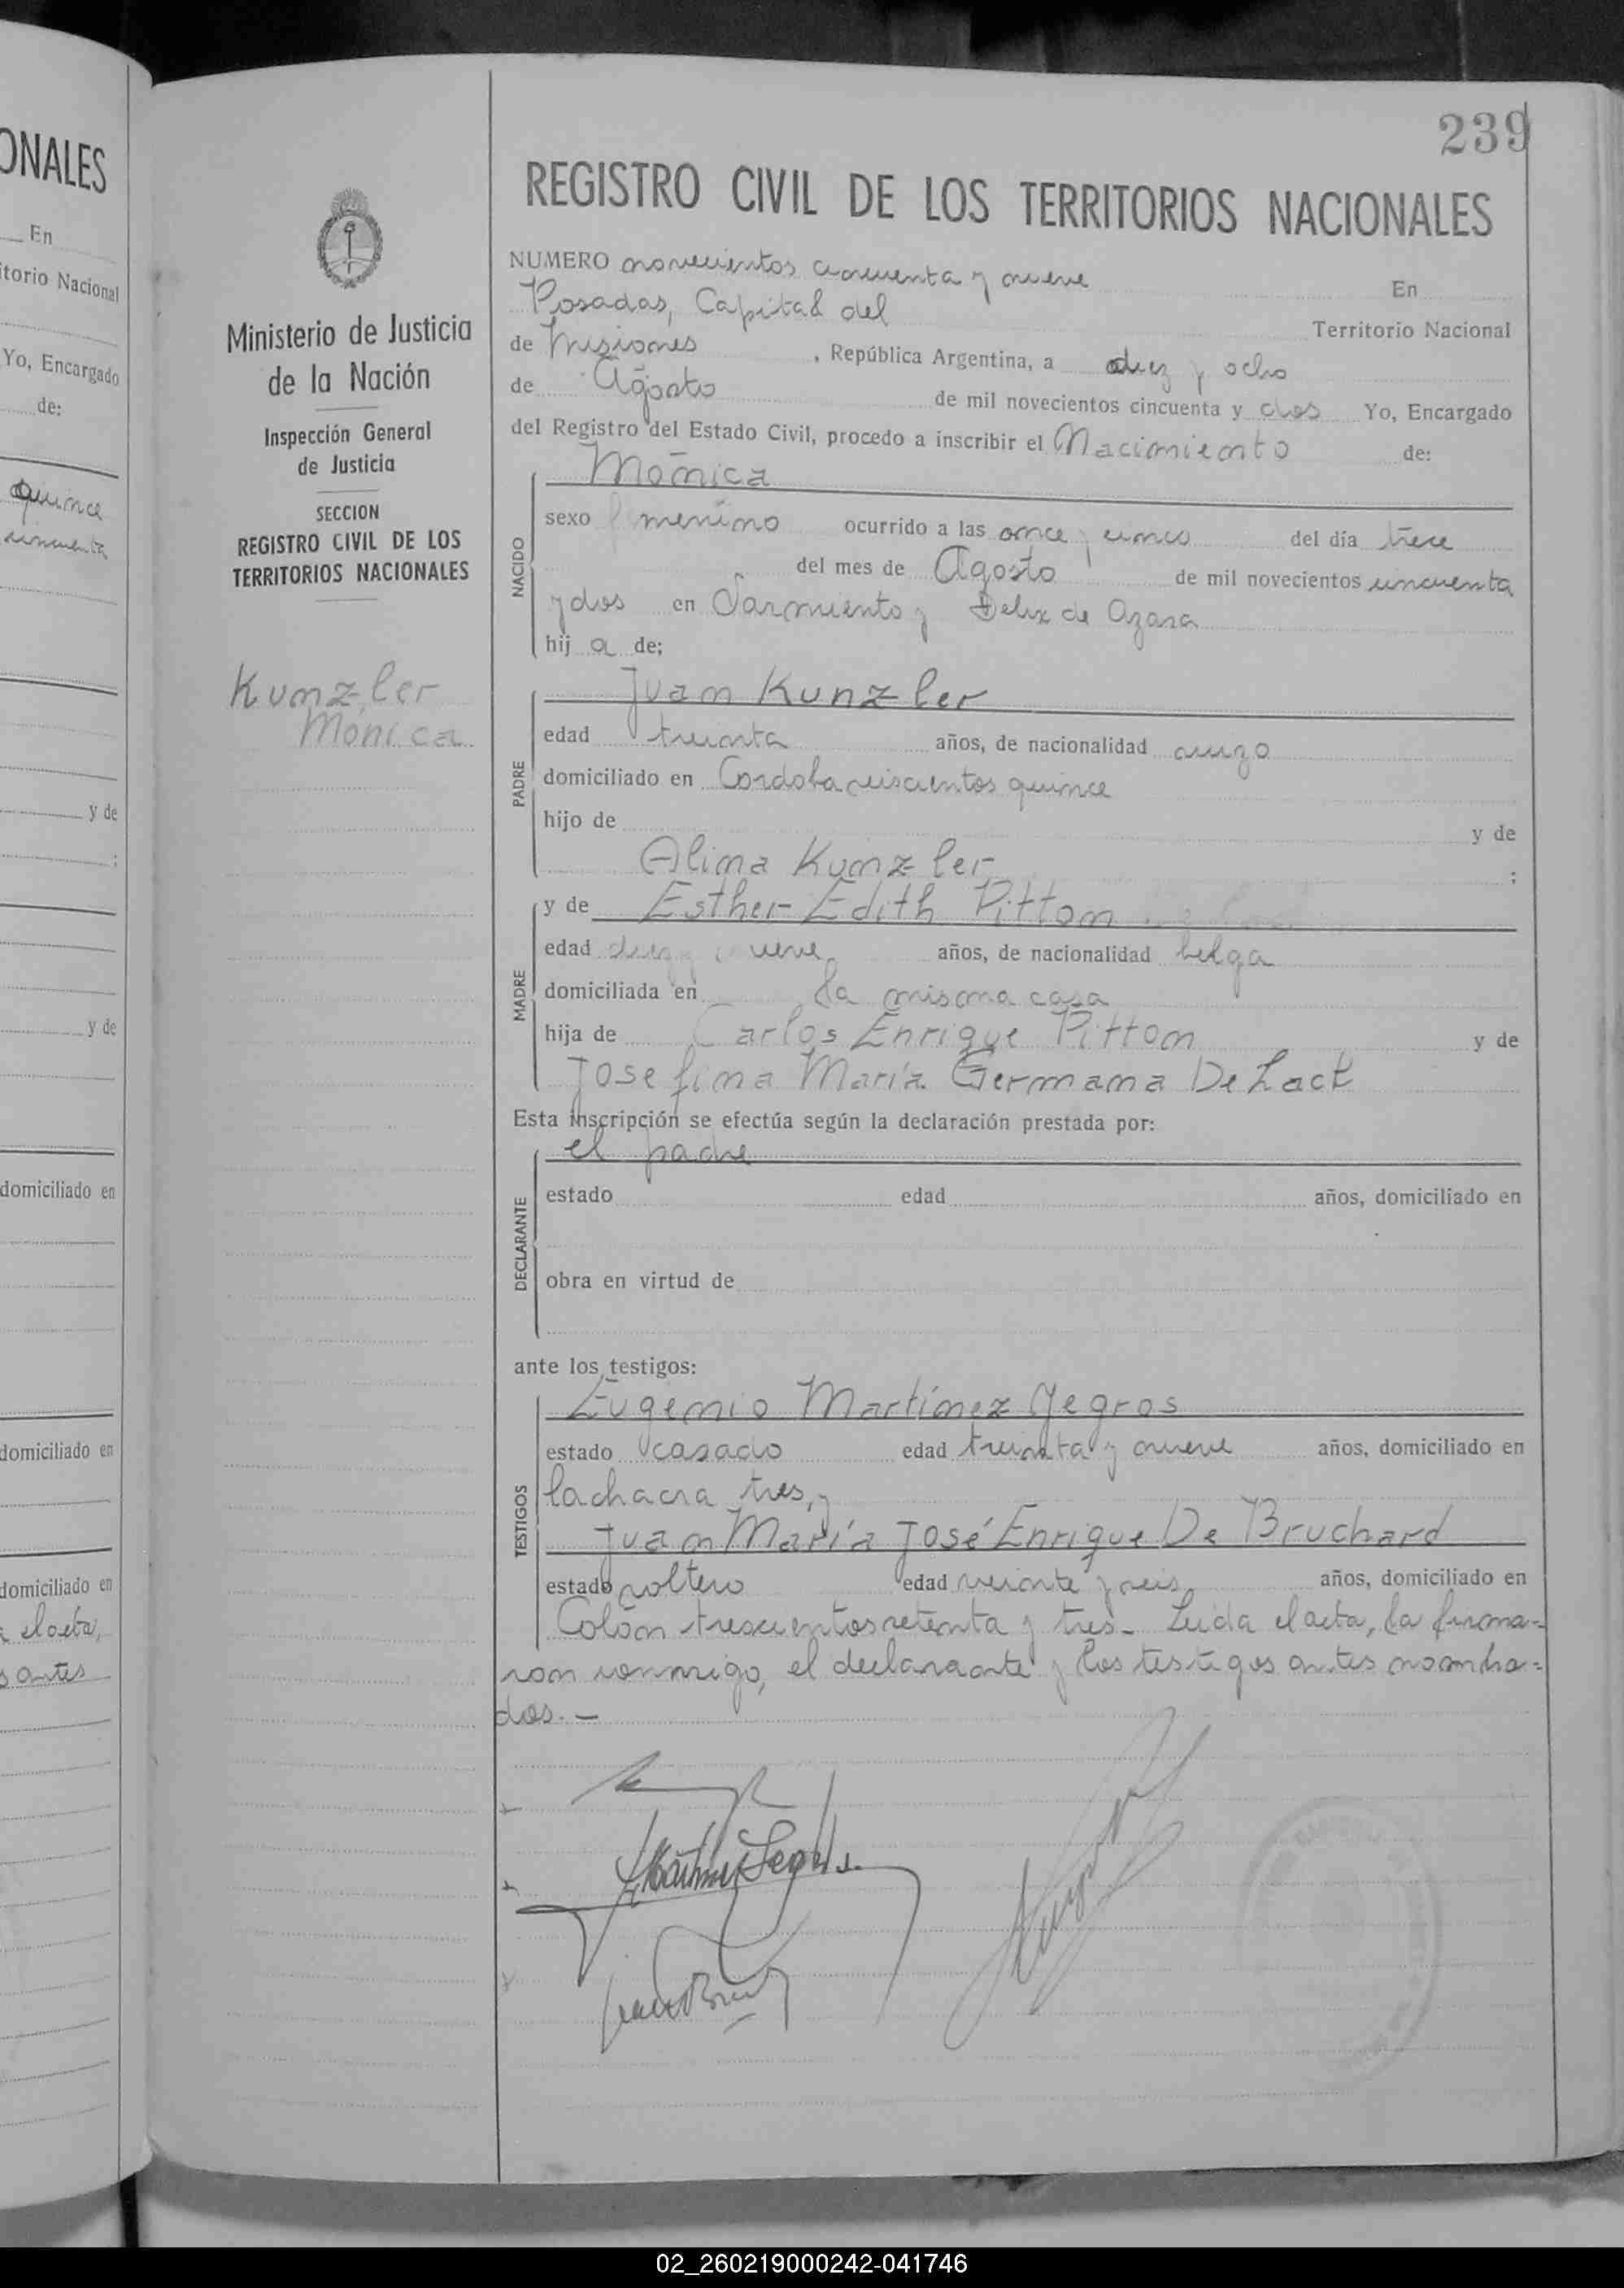 239
ONALES
En
itorio Nacional
Yo, Encargado
de:
quince
cincuenta
y de
;
y de
domiciliado en
domiciliado en
domiciliado en
el acta,
s antes
Ministerio de Justicia
de la Nación
Inspección General
de Justicia
SECCION
REGISTRO CIVIL DE LOS
TERRITORIOS NACIONALES
Kunzler
Mónica
REGISTRO CIVIL DE LOS TERRITORIOS NACIONALES
NUMERO novecientos cincuenta y nueve En
Posadas, Capital del Territorio Nacional
de Misiones , República Argentina, a diez y ocho
de Agosto de mil novecientos cincuenta y dos Yo, Encargado
del Registro del Estado Civil, procedo a inscribir el Nacimiento de:
Mónica
NACIDO
sexo femenino ocurrido a las once y cinco del día trece
del mes de Agosto de mil novecientos cincuenta
y dos en Sarmiento y Felix de Azara
hij a de;
Juan Kunzler
PADRE
edad treinta años, de nacionalidad suizo
domiciliado en Cordoba seiscientos quince
hijo de y de
Alina Kunzler ;
y de Esther Edith Pitton
MADRE
edad diez y nueve años, de nacionalidad belga
domiciliada en la misma casa
hija de Carlos Enrique Pitton y de
Josefina María Germana De Lact
Esta inscripción se efectúa según la declaración prestada por:
el padre
DECLARANTE
estado edad años, domiciliado en
obra en virtud de
ante los testigos:
Eugenio Martínez Yegros
TESTIGOS
estado casado edad treinta y nueve años, domiciliado en
la chacra tres, y
Juan María José Enrique De Bruchard
estado soltero edad veinte y seis años, domiciliado en
Colón trescientos setenta y tres.- Leída el acta, la firma=
ron conmigo, el declarante y los testigos antes nombra=
dos.-
02_260219000242-041746